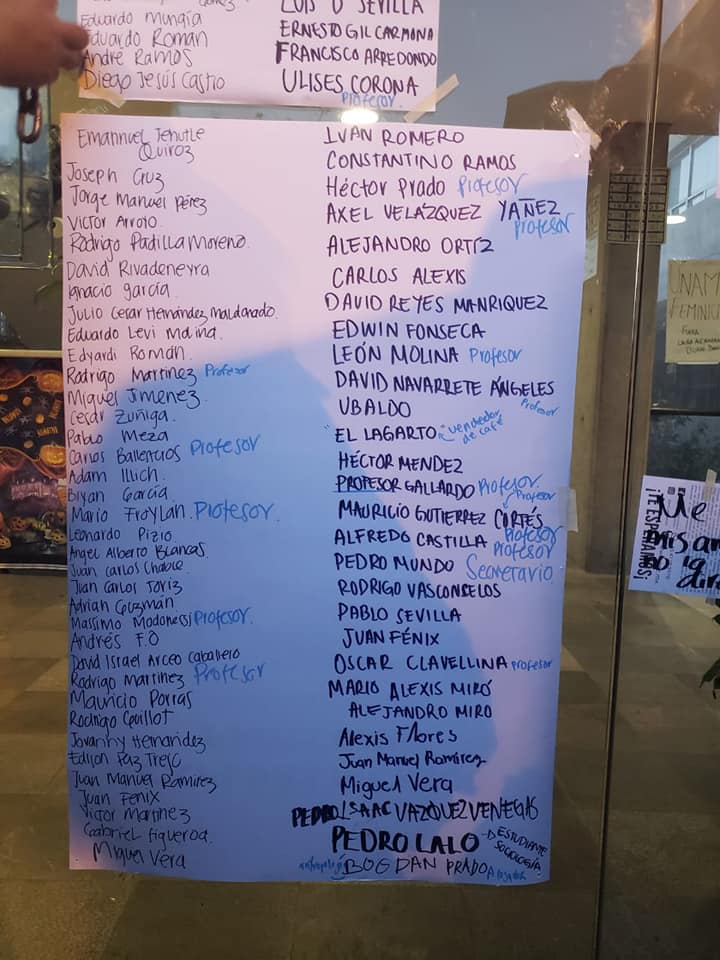 Eduardo Mungía
Eduardo Román
André Ramos
Diego Jesús Castro
LUIS D SEVILLA
ERNESTO GIL CARMONA
FRANCISCO ARREDONDO
ULISES CORONA
Profesor
Emannuel Tehutle
Quiroz
Joseph Cruz
Jorge Manuel Pérez
Victor Arroyo.
Rodrigo Padilla Moreno.
David Rivadeneyra
Ignacio garcía
Julio Cesar Hernández Maldonado.
Eduardo Levi Molina.
Edyardi Román.
Rodrigo Martínez Profesor
Miguel Jimenez
Cesar Zuñiga
Pablo Meza
Carlos Ballesteros Profesor
Adam Illich.
Bryan García
Mario Froylan. Profesor
Leonardo Pizio
Angel Alberto Blancas
Juan Carlos Chable
Juan Carlos Toriz
Adrian Guzmán
Massimo Modonessi Profesor.
Andrés F.O
David Israel Arceo Caballero
Rodrigo Martinez Profesor
Mauricio Porras
Rodrigo Guillot
Jovanny Hernández
Edison Paz Trejo
Juan Manuel Ramírez
Juan Fenix
Victor Martinez
Gabriel figueroa.
Miguel Vera
IVÁN ROMERO
CONSTANTINO RAMOS
Héctor Prado Profesor
AXEL VELÁZQUEZ YAÑEZ
Profesor
ALEJANDRO ORTÍZ
CARLOS ALEXIS
DAVID REYES MANRIQUEZ
EDWIN FONSECA
LEÓN MOLINA Profesor
DAVID NAVARRETE ÁNGELES
Profesor
UBALDO
"EL LAGARTO" vendedor
de café
HÉCTOR MENDEZ
PROFESOR GALLARDO Profesor
Profesor
MAURICIO GUTIERREZ CORTÉS
Profesor
ALFREDO CASTILLA
Profesor
PEDRO MUNDO Secretario
RODRIGO VASCONSELOS
PABLO SEVILLA
JUAN FÉNIX
OSCAR CLAVELLINA profesor
MARIO ALEXIS MIRÓ
ALEJANDRO MIRO
Alexis Flores
Juan Manuel Ramírez
Miguel Vera
PEDRO ISAAC VÁZQUEZ VENEGAS
PEDRO LALO
ESTUDIANTE
SOCIOLOGÍA
BOGDAN PRADO
UNAM
FEMINICI
¡TE ESPERAMOS!
Me